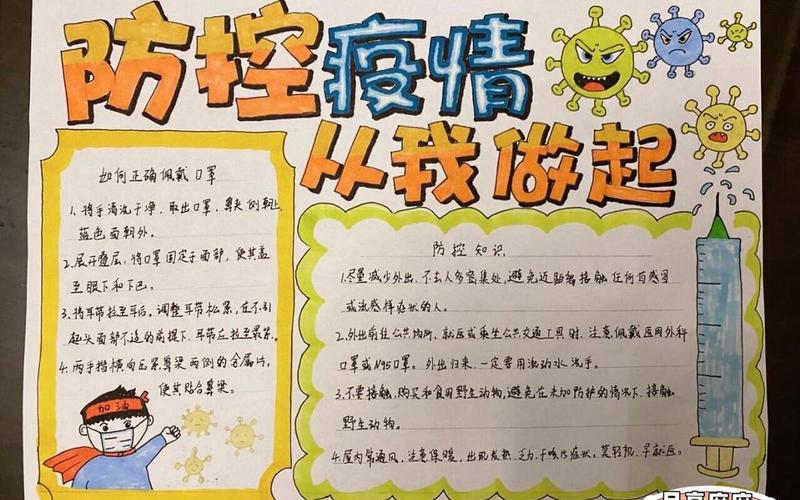 防控疫情
从我做起
如何正确佩戴口罩
1、将手清洗干净,取出口罩,鼻夹侧朝上,
蓝色面朝外。
2.展开叠层,将口罩固定于面部,使其盖
至眼下和下巴。
3、将耳带拉至耳后,调整耳带松紧,在不引
起头面部不适的前提下,耳带应拉至最紧。
4、两手指横向压紧鼻梁两侧的金属片,
使其贴合鼻梁。
加油
防控知识
1.尽量减少外出,不去人多密集处,避免近距离接触任何有感冒
或流感样症状的人。
2.外出前往公共场所、就医或乘坐公共交通工具时,注意佩戴医用外科
口罩或N95口罩。外出归来,一定要用流动水洗手。
3.不要接触、购买和食用野生动物,避免在未加防护的情况下接触
野生动物。
4.屋内常通风,注意保暖,出现发热、乏力、干咳等症状,莫轻视,早就医。